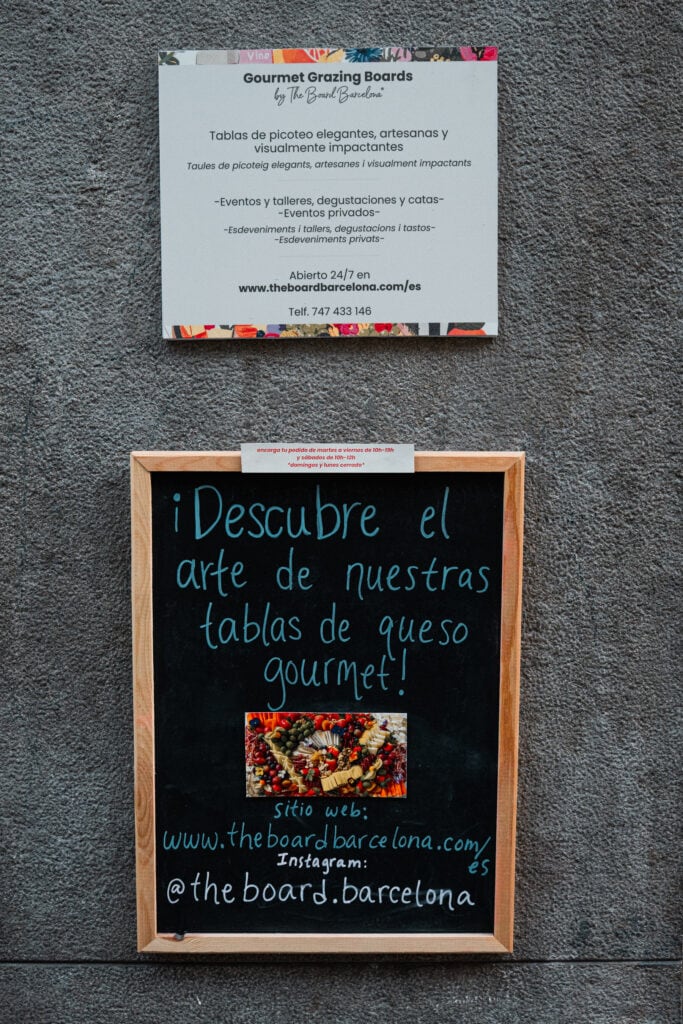 Vine
Gourmet Grazing Boards
by The Board Barcelona*
Tablas de picoteo elegantes, artesanas y
visualmente impactantes
Taules de picoteig elegants, artesanes i visualment impactants
-Eventos y talleres, degustaciones y catas-
-Eventos privados-
-Esdeveniments i tallers, degustacions i tastos-
-Esdeveniments privats-
Abierto 24/7 en
www.theboardbarcelona.com/es
Telf. 747 433 146
encarga tu pedido de martes a viernes de 10h-19h
y sábados de 10h-12h
*domingos y lunes cerrado*
¡Descubre el
arte de nuestras
tablas de queso
gourmet!
sitio web:
www.theboardbarcelona.com/
es
Instagram:
@the board.barcelona